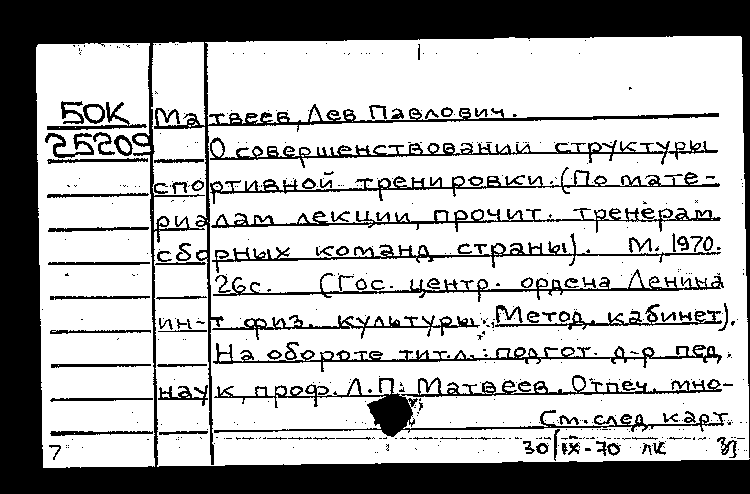 БОК Матвеев, Лев Павлович.
25209 О совершенствовании структуры
спортивной тренировки. (По мате-
риалам лекции, прочит. тренерам
сборных команд страны). М., 1970.
26с. (Гос. центр. ордена Ленина
ин-т физ. культуры. Метод. кабинет).
На обороте тит.л.: подгот. д-р пед.
наук, проф. Л.П. Матвеев. Отпеч. мно-
См. след. карт.
7 30/IX-70 лк